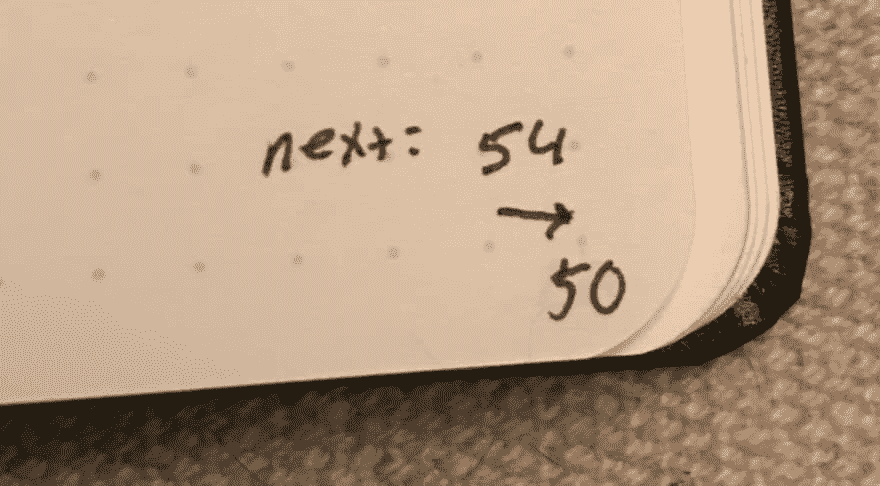 next: 54
→
50